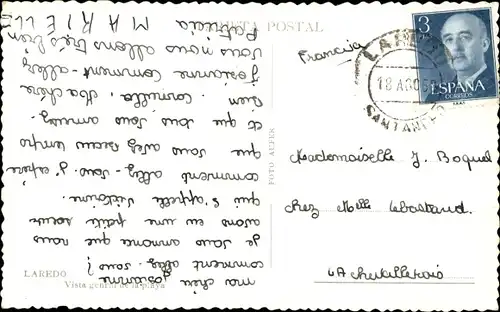 TARJETA POSTAL
3
ESPAÑA
CORREOS
LAREDO
18 AGO
SANTANDER
Francia
Mademoiselle J. Boquel
chez Melle
FOTO ALFER
LAREDO
Vista general de la playa
ma chère
josianne
comment allez-vous ?
je vous annonce que nous
avons eu une petite soeur
qui s'appelle Victorine.
comment allez-vous. j'espère
que vous avez beau temps
et que vous vous amusez
bien. Cornélia. Ma chère
josianne comment-allez
vous nous allons très bien
Patricia
MARIELLE